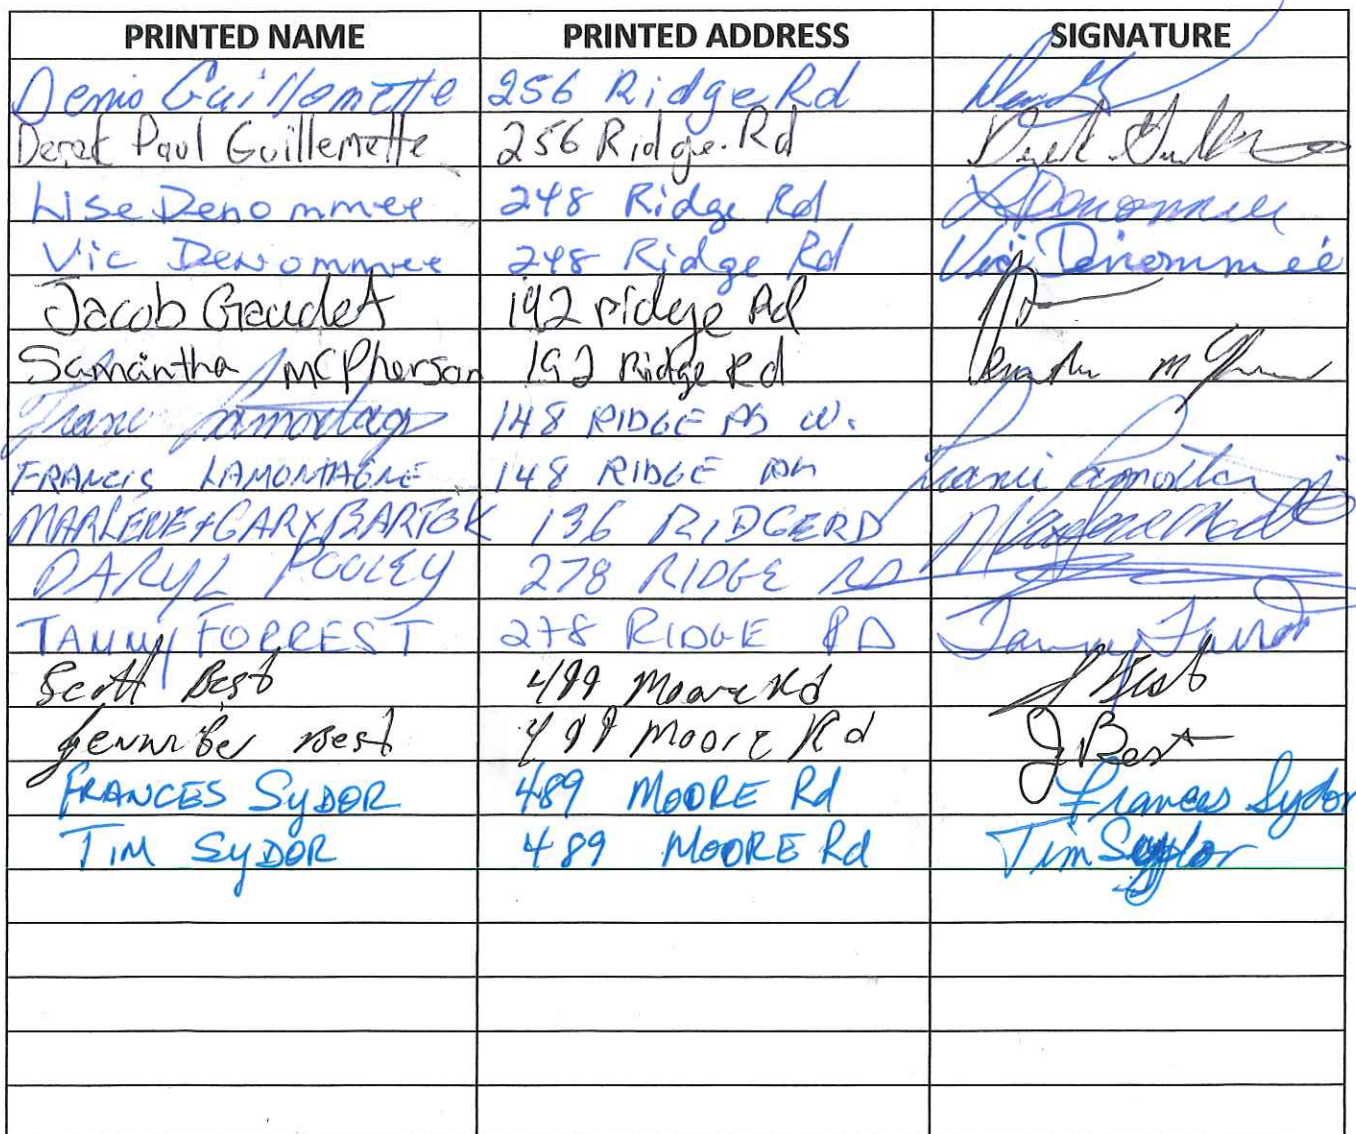 PRINTED NAME PRINTED ADDRESS SIGNATURE
Denis Guillemette 256 Ridge Rd
Derek Paul Guillemette 256 Ridge Rd
Lise Denommee 248 Ridge Rd L Denommee
Vic Denommee 248 Ridge Rd Vic Denommée
Jacob Gaudet 192 ridge Rd
Samantha McPherson 192 Ridge Rd
148 RIDGE RD W.
FRANCIS LAMONTAGNE 148 RIDGE
MARLENE + GARY BARTOK 136 RIDGE RD
DARYL POOLEY 278 RIDGE RD
TAMMY FORREST 278 RIDGE RD
Scott Best 499 Moore Rd S Best
Jennifer Best 499 Moore Rd J Best
FRANCES SYDOR 489 MOORE Rd Frances Sydor
TIM SYDOR 489 MOORE Rd Tim Sydor